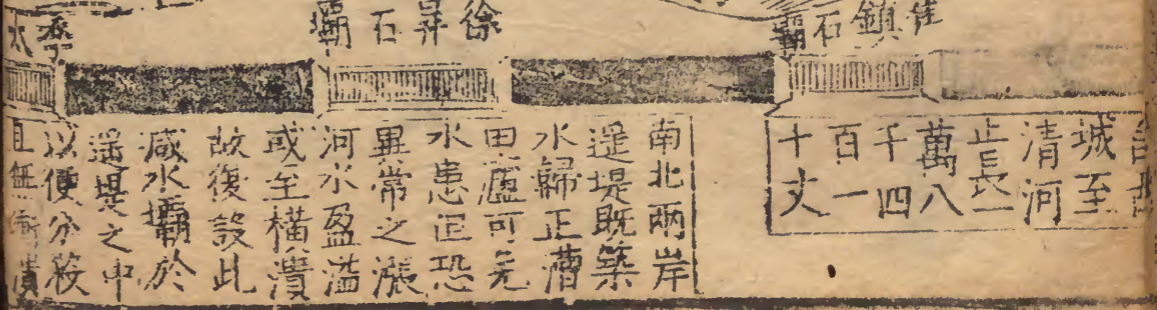 崔鎮石壩
徐昇石壩
季太
城至
清河
止長一
萬八
千四
百一
十丈
南北兩岸
遥堤既築
水歸正漕
田廬可免
水患但恐
異常之漲
河水盈溢
或至橫潰
故復設此
減水壩於
遥堤之中
以便分殺
且無衝潰